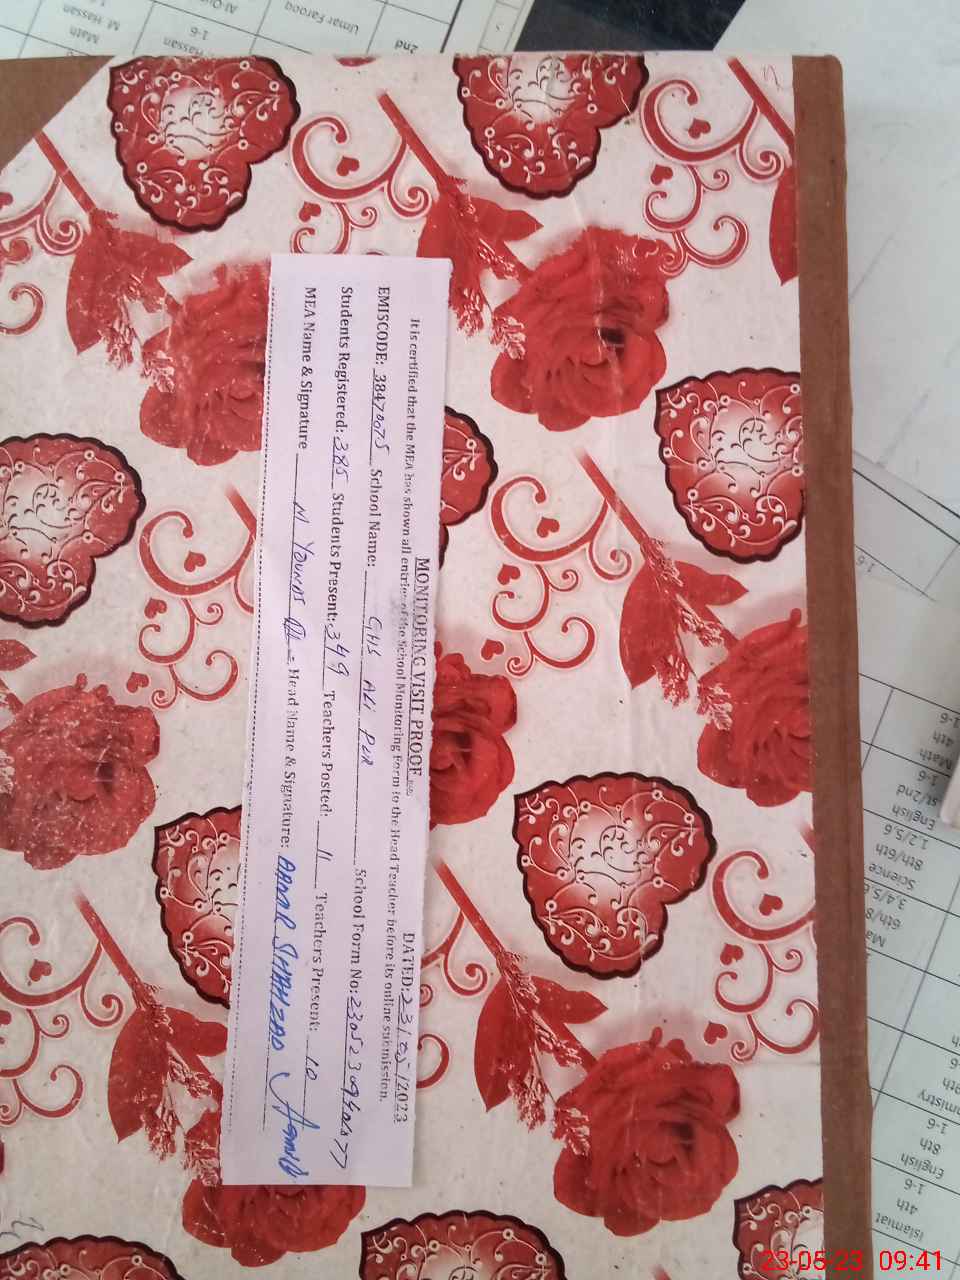 MONITORING VISIT PROOF
DATED: 23/05/2023
It is certified that the MEA has shown all entries of the School Monitoring Form to the Head Teacher before its online submission.
EMISCODE: 38470075 School Name: GHS ALI PUR School Form No:
Students Registered: 385 Students Present: 349 Teachers Posted: 11 Teachers Present: 10
MEA Name & Signature M YOUNAS Head Name & Signature: SHAHZAD
2nd
Umar Farooq
1-6
Hassan
Math
M Hassan
1-6
4th
Math
1-6
st/2nd
English
1,2/5,6
8th/6th
Science
3,4/5,6
6th/8
1-6
8th
English
1-6
4th
Islamiat
23-05-23 09:41